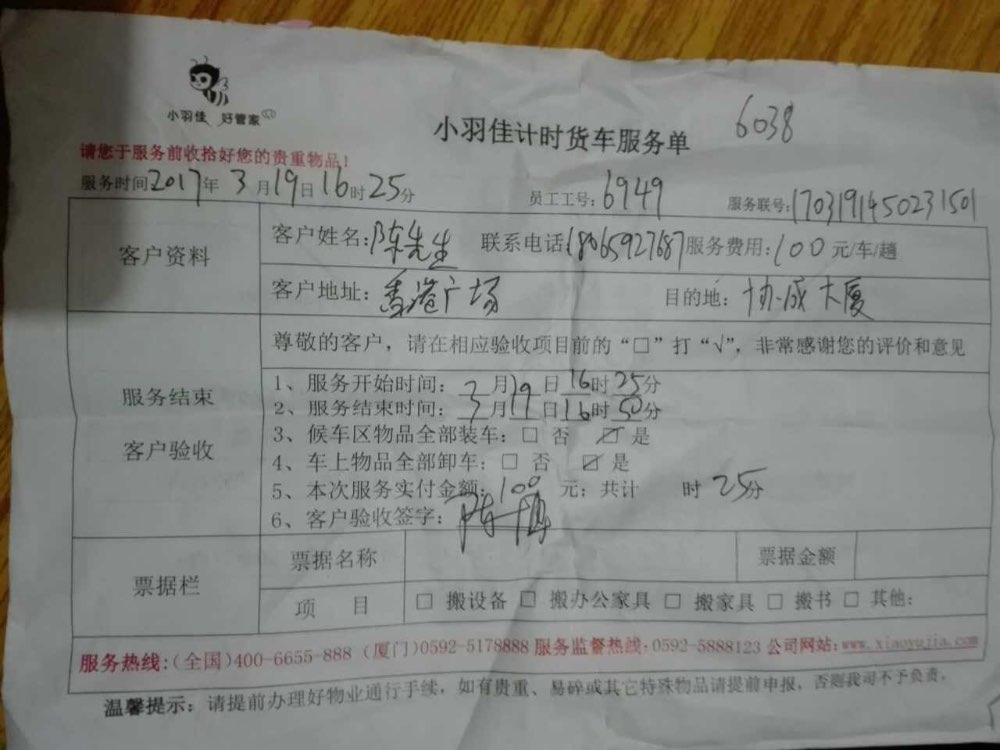 小羽佳 好管家
小羽佳计时货车服务单 6038
请您于服务前收拾好您的贵重物品!
服务时间2017年3月19日16时25分 员工工号:6949 服务联号:1703191450231501
客户资料 客户姓名:陈先生 联系电话:18065927687 服务费用:100元/车/趟
客户地址:香港广场 目的地:协成大厦
服务结束 客户验收
尊敬的客户,请在相应验收项目前的“□”打“√”,非常感谢您的评价和意见
1、服务开始时间:3月19日16时25分
2、服务结束时间:3月19日16时50分
3、候车区物品全部装车:□ 否 ☑ 是
4、车上物品全部卸车:□ 否 ☑ 是
5、本次服务实付金额:100元;共计 时25分
6、客户验收签字:
票据栏 票据名称 票据金额
项 目 □ 搬设备 □ 搬办公家具 □ 搬家具 □ 搬书 □ 其他:
服务热线:(全国)400-6655-888 (厦门)0592-5178888 服务监督热线:0592-5888123 公司网站:www.xiaoyujia.com
温馨提示:请提前办理好物业通行手续,如有贵重、易碎或其它特殊物品请提前申报,否则我司不予负责。